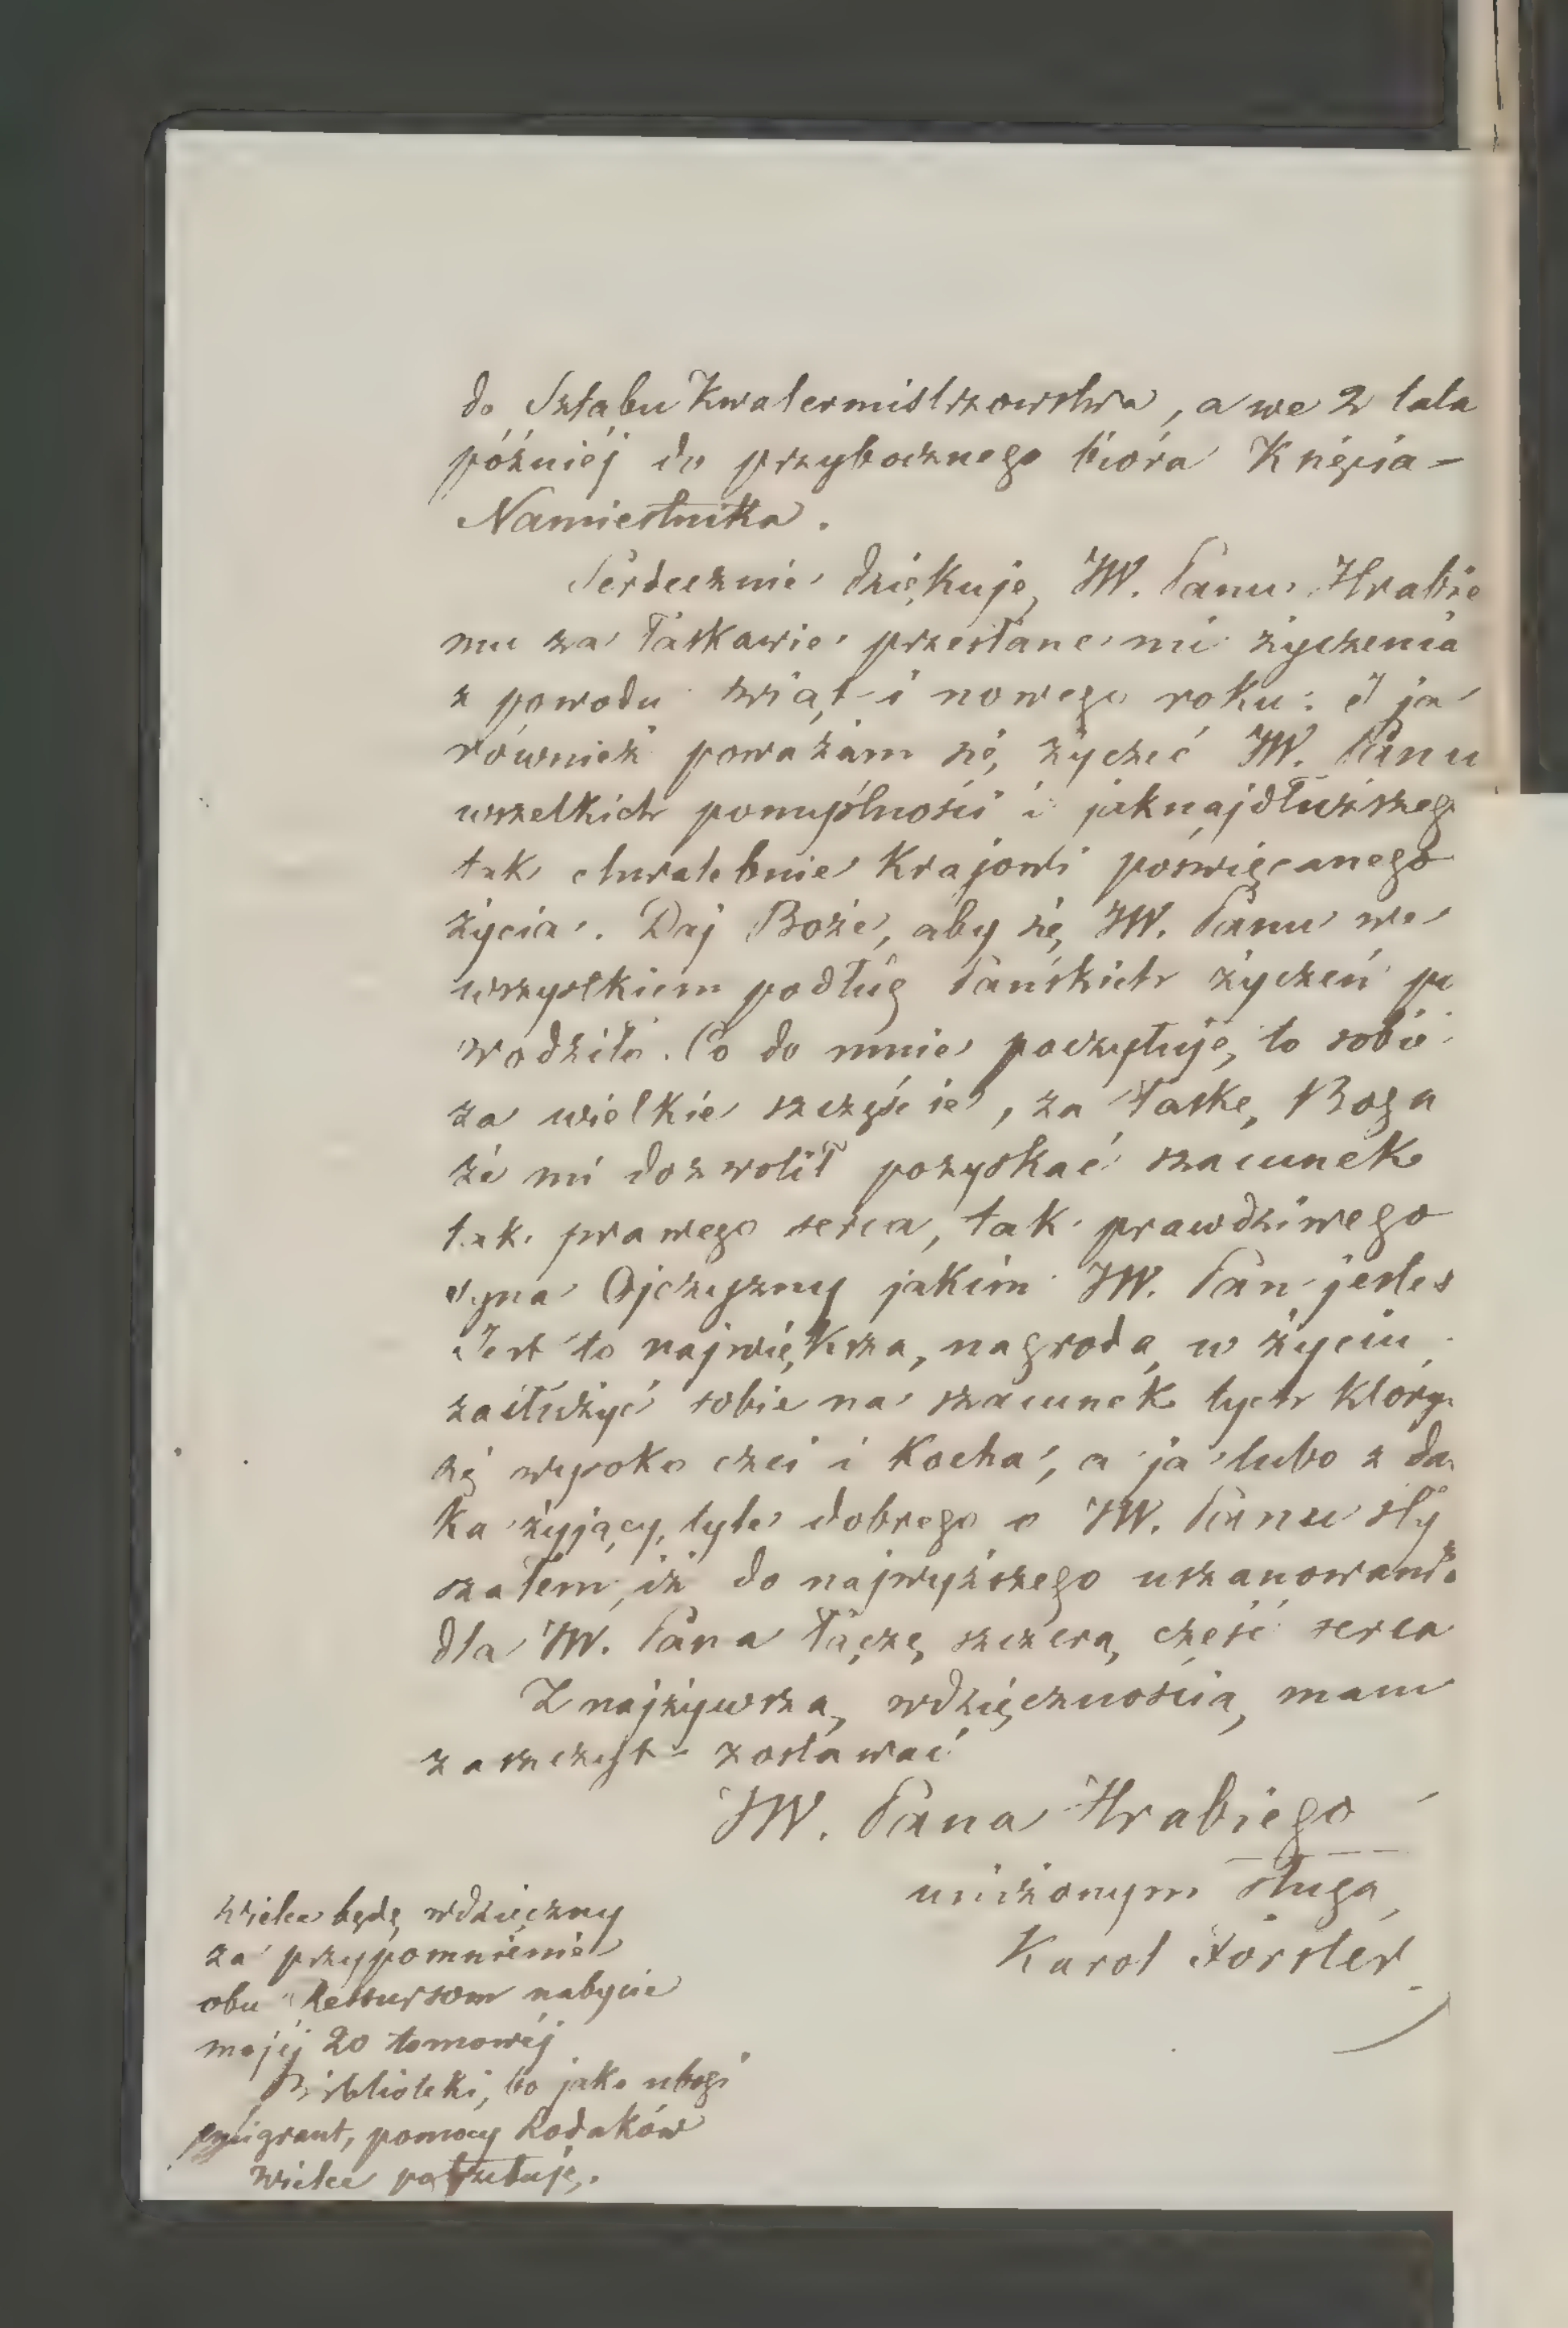 do Sztabu Kwatermistrzowstwa, a we 2 lata
później do przybocznego bióra Xnięcia-
Namiestnika.
Serdecznie dziękuję JW. Panu Hrabie
mu za łaskawie przesłane mi życzenia
z powodu świąt i nowego roku: i ja
również poważam się życzeć JW. Panu
wszelkich pomyślności i jaknajdłuższeg
tak chwalebnie Krajowi poświęcanego
życia. Daj Boże, aby się JW. Panu we
wszystkiem podług Pańskich życzeń po
wodziło. Co do mnie poczytuję to sobie
za wielkie szczęście, za łaskę Boga
że mi dozwolił pozyskać szacunek
tak prawego serca, tak prawdziwego
syna Ojczyzny jakim JW. Pan jesteś
Jest to największą nagrodą w życiu
zasłużyć sobie na szacunek tych który
się wysoko czci i Kocha, a ja lubo z da
Ka żyjący, tyle dobrego o JW. Panu sły
szałem, iż do najwyższego uszanowania
dla JW. Pana łączę szczerą cześć serca
Z najżywszą wdzięcznością mam
zaszczyt zostawać
JW. Pana Hrabiego
uniżonym sługą
Karol Forster
Wielce będę wdzięczny
za przypomnienie
obu Ressursom nabycie
mojéj 20 tomowéj
Biblioteki, bo jako ubogi
emigrant, pomocy Rodaków
wielce potrzebuję.